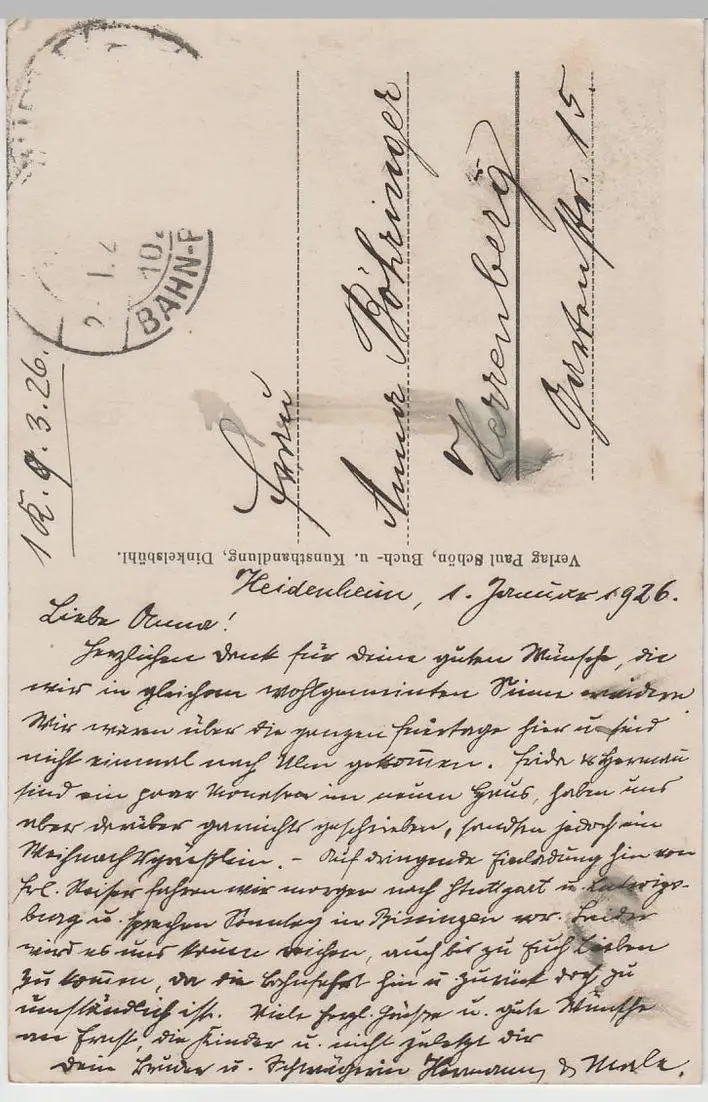 BAHN-P
1 K. 9.3.26.
Frau
Anna Böhringer
Herrenberg
Gartenstr. 15.
Verlag Paul Schön, Buch- u. Kunsthandlung, Dinkelsbühl.
Heidenheim, 1. Januar 1926.
Liebe Anna!
Herzlichen Dank für Deine guten Wünsche, die
wir in gleichem wohlgemeinten Sinne erwidern.
Wir waren über die ganzen Feiertage hier u. sind
nicht einmal nach Ulm gekommen. Frida & Hermann
sind ein paar Monaten im neuen Haus, haben uns
aber darüber garnichts geschrieben, sandten jedoch ein
Weihnachtsgrüßlein. – Auf dringende Einladung hin von
Frl. fahren wir morgen nach Stuttgart u. Ludwigs-
burg u. sprechen Sonntag in Bissingen vor. Leider
wird es uns kaum reichen, auch bis zu Euch Lieben
zu kommen, da die Bahnfahrt hin u. zurück doch zu
umständlich ist. Viele herzl. Grüße u. gute Wünsche
an Ernst, die Kinder u. nicht zuletzt Dir
Dein Bruder u. Schwägerin Hermann &